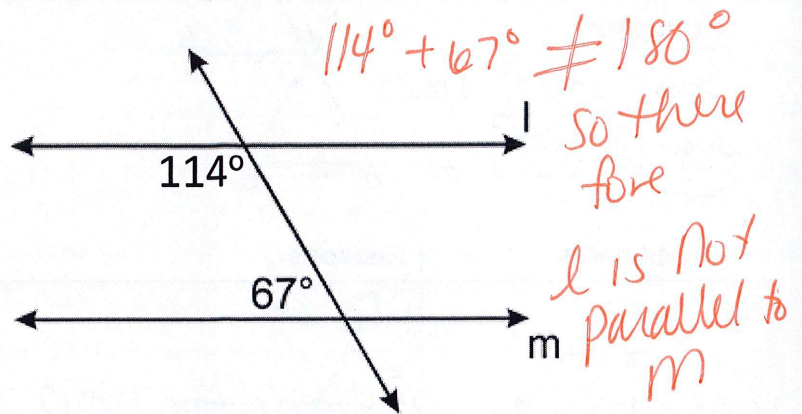 114° + 67° ≠ 180°
l
so there
fore
114°
l is not
67°
parallel to
m
m